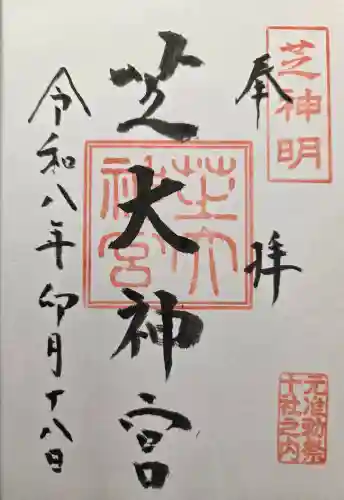 芝神明
奉拝
元准勅祭
十社之内
芝大神宮
芝大
神宮
令和八年卯月十八日